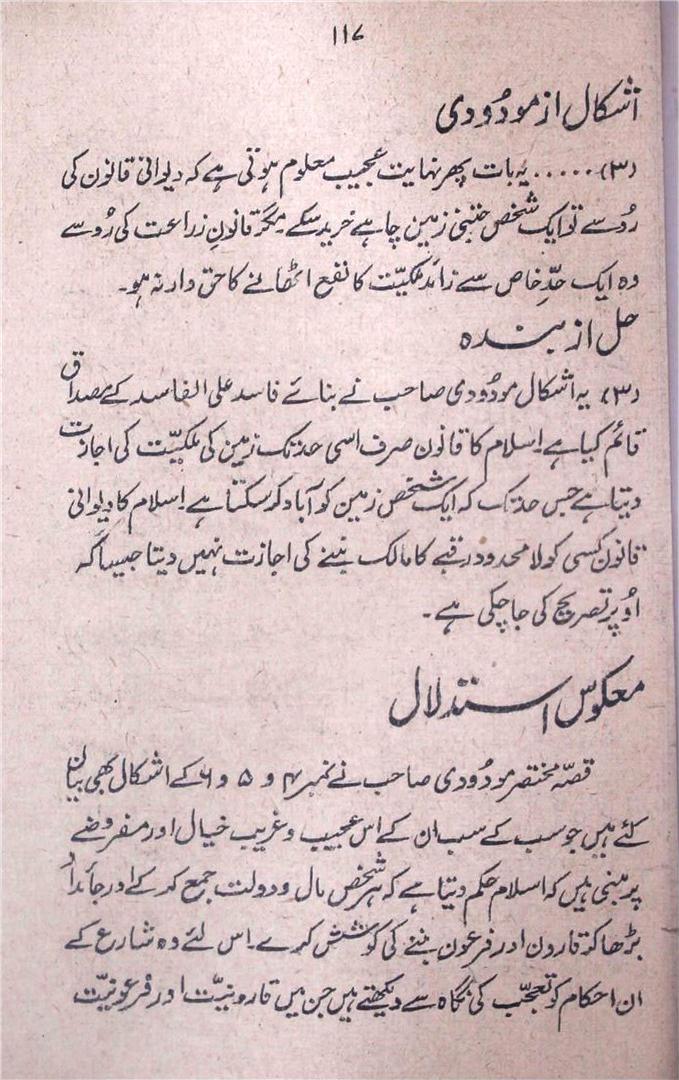 ۱۱۷
اشکال از مودودی
(۳) ..... یہ بات پھر نہایت عجیب معلوم ہوتی ہے کہ دیوانی قانون کی
رُو سے تو ایک شخص جتنی زمین چاہے خرید سکے مگر قانونِ زراعت کی رُو سے
وہ ایک حدِّ خاص سے زائد ملکیّت کا نفع اٹھانے کا حق دار نہ ہو۔
حل از بندہ
(۳) یہ اشکال مودودی صاحب نے بنائے فاسد علی الفاسد کے مصداق
قائم کیا ہے۔ اسلام کا قانون صرف اسی حد تک زمین کی ملکیّت کی اجازت
دیتا ہے جس حد تک کہ ایک شخص زمین کو آباد کر سکتا ہے۔ اسلام کا دیوانی
قانون کسی کو لا محدود رقبے کا مالک بننے کی اجازت نہیں دیتا جیسا کہ
اُوپر تصریح کی جا چکی ہے۔
معکوس استدلال
قصّہ مختصر مودودی صاحب نے نمبر ۴ و ۵ و ۶ کے اشکال بھی بیان
کئے ہیں جو سب کے سب ان کے اس عجیب و غریب خیال اور مفروضے
پر مبنی ہیں کہ اسلام حکم دیتا ہے کہ ہر شخص مال و دولت جمع کر کے اور جائداد
بڑھا کر قارون اور فرعون بننے کی کوشش کرے۔ اس لئے وہ شارع کے
ان احکام کو تعجّب کی نگاہ سے دیکھتے ہیں جن میں قارونیّت اور فرعونیّت